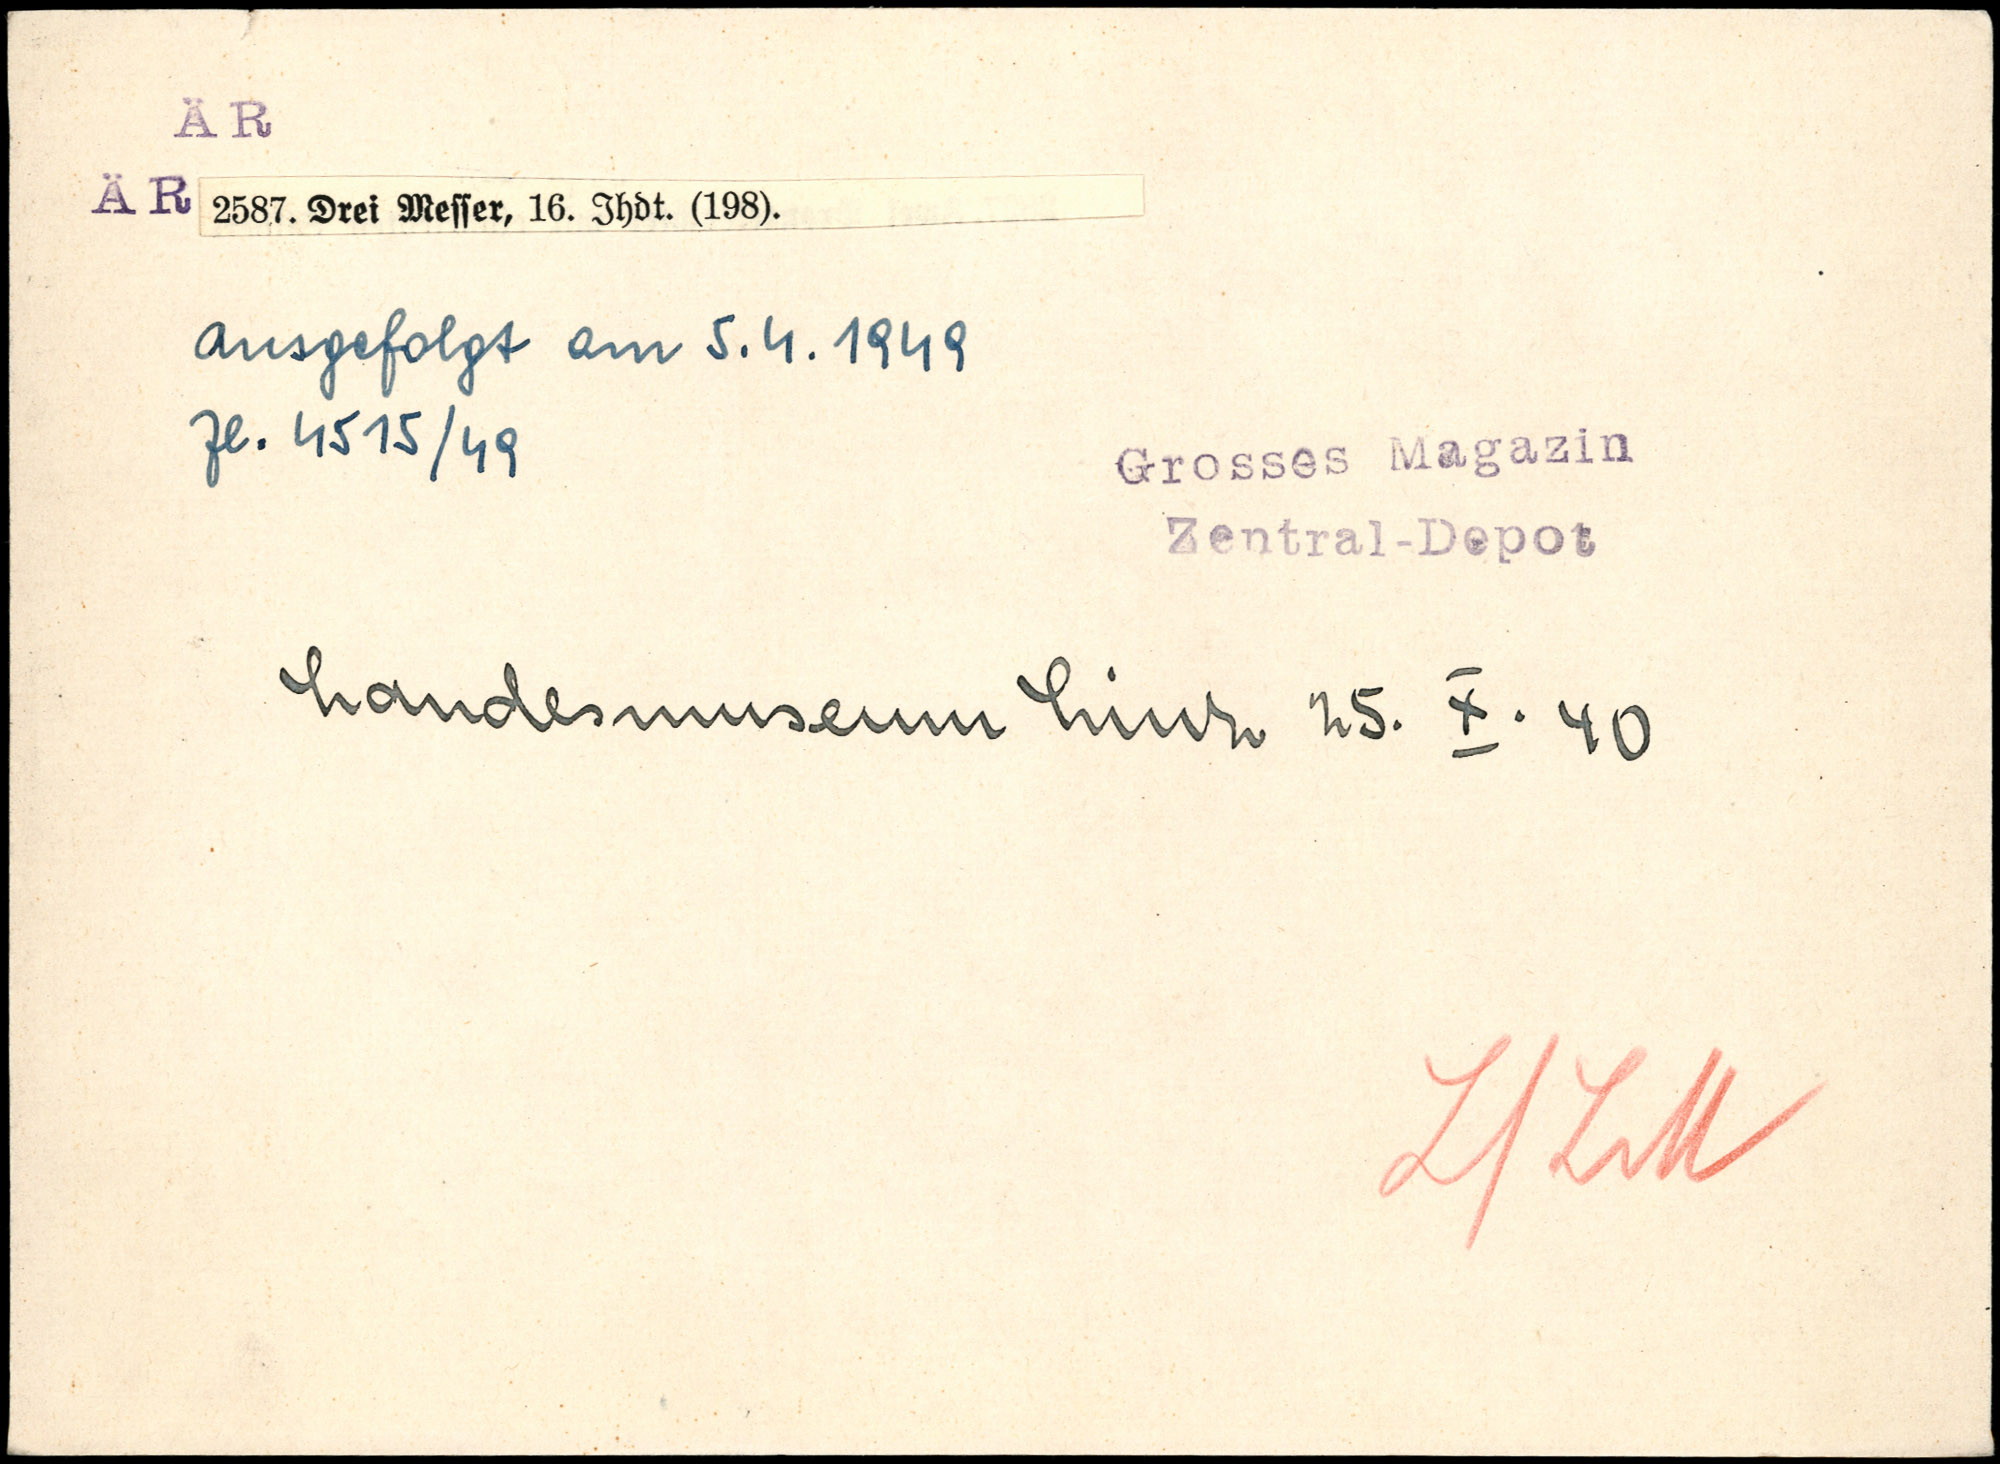 ÄR
ÄR 2587. Drei Messer, 16. Ihdt. (198).
ausgefolgt am 5.4.1949
Zl. 4515/49
Grosses Magazin
Zentral-Depot
Landesmuseum Linz 25. X. 40